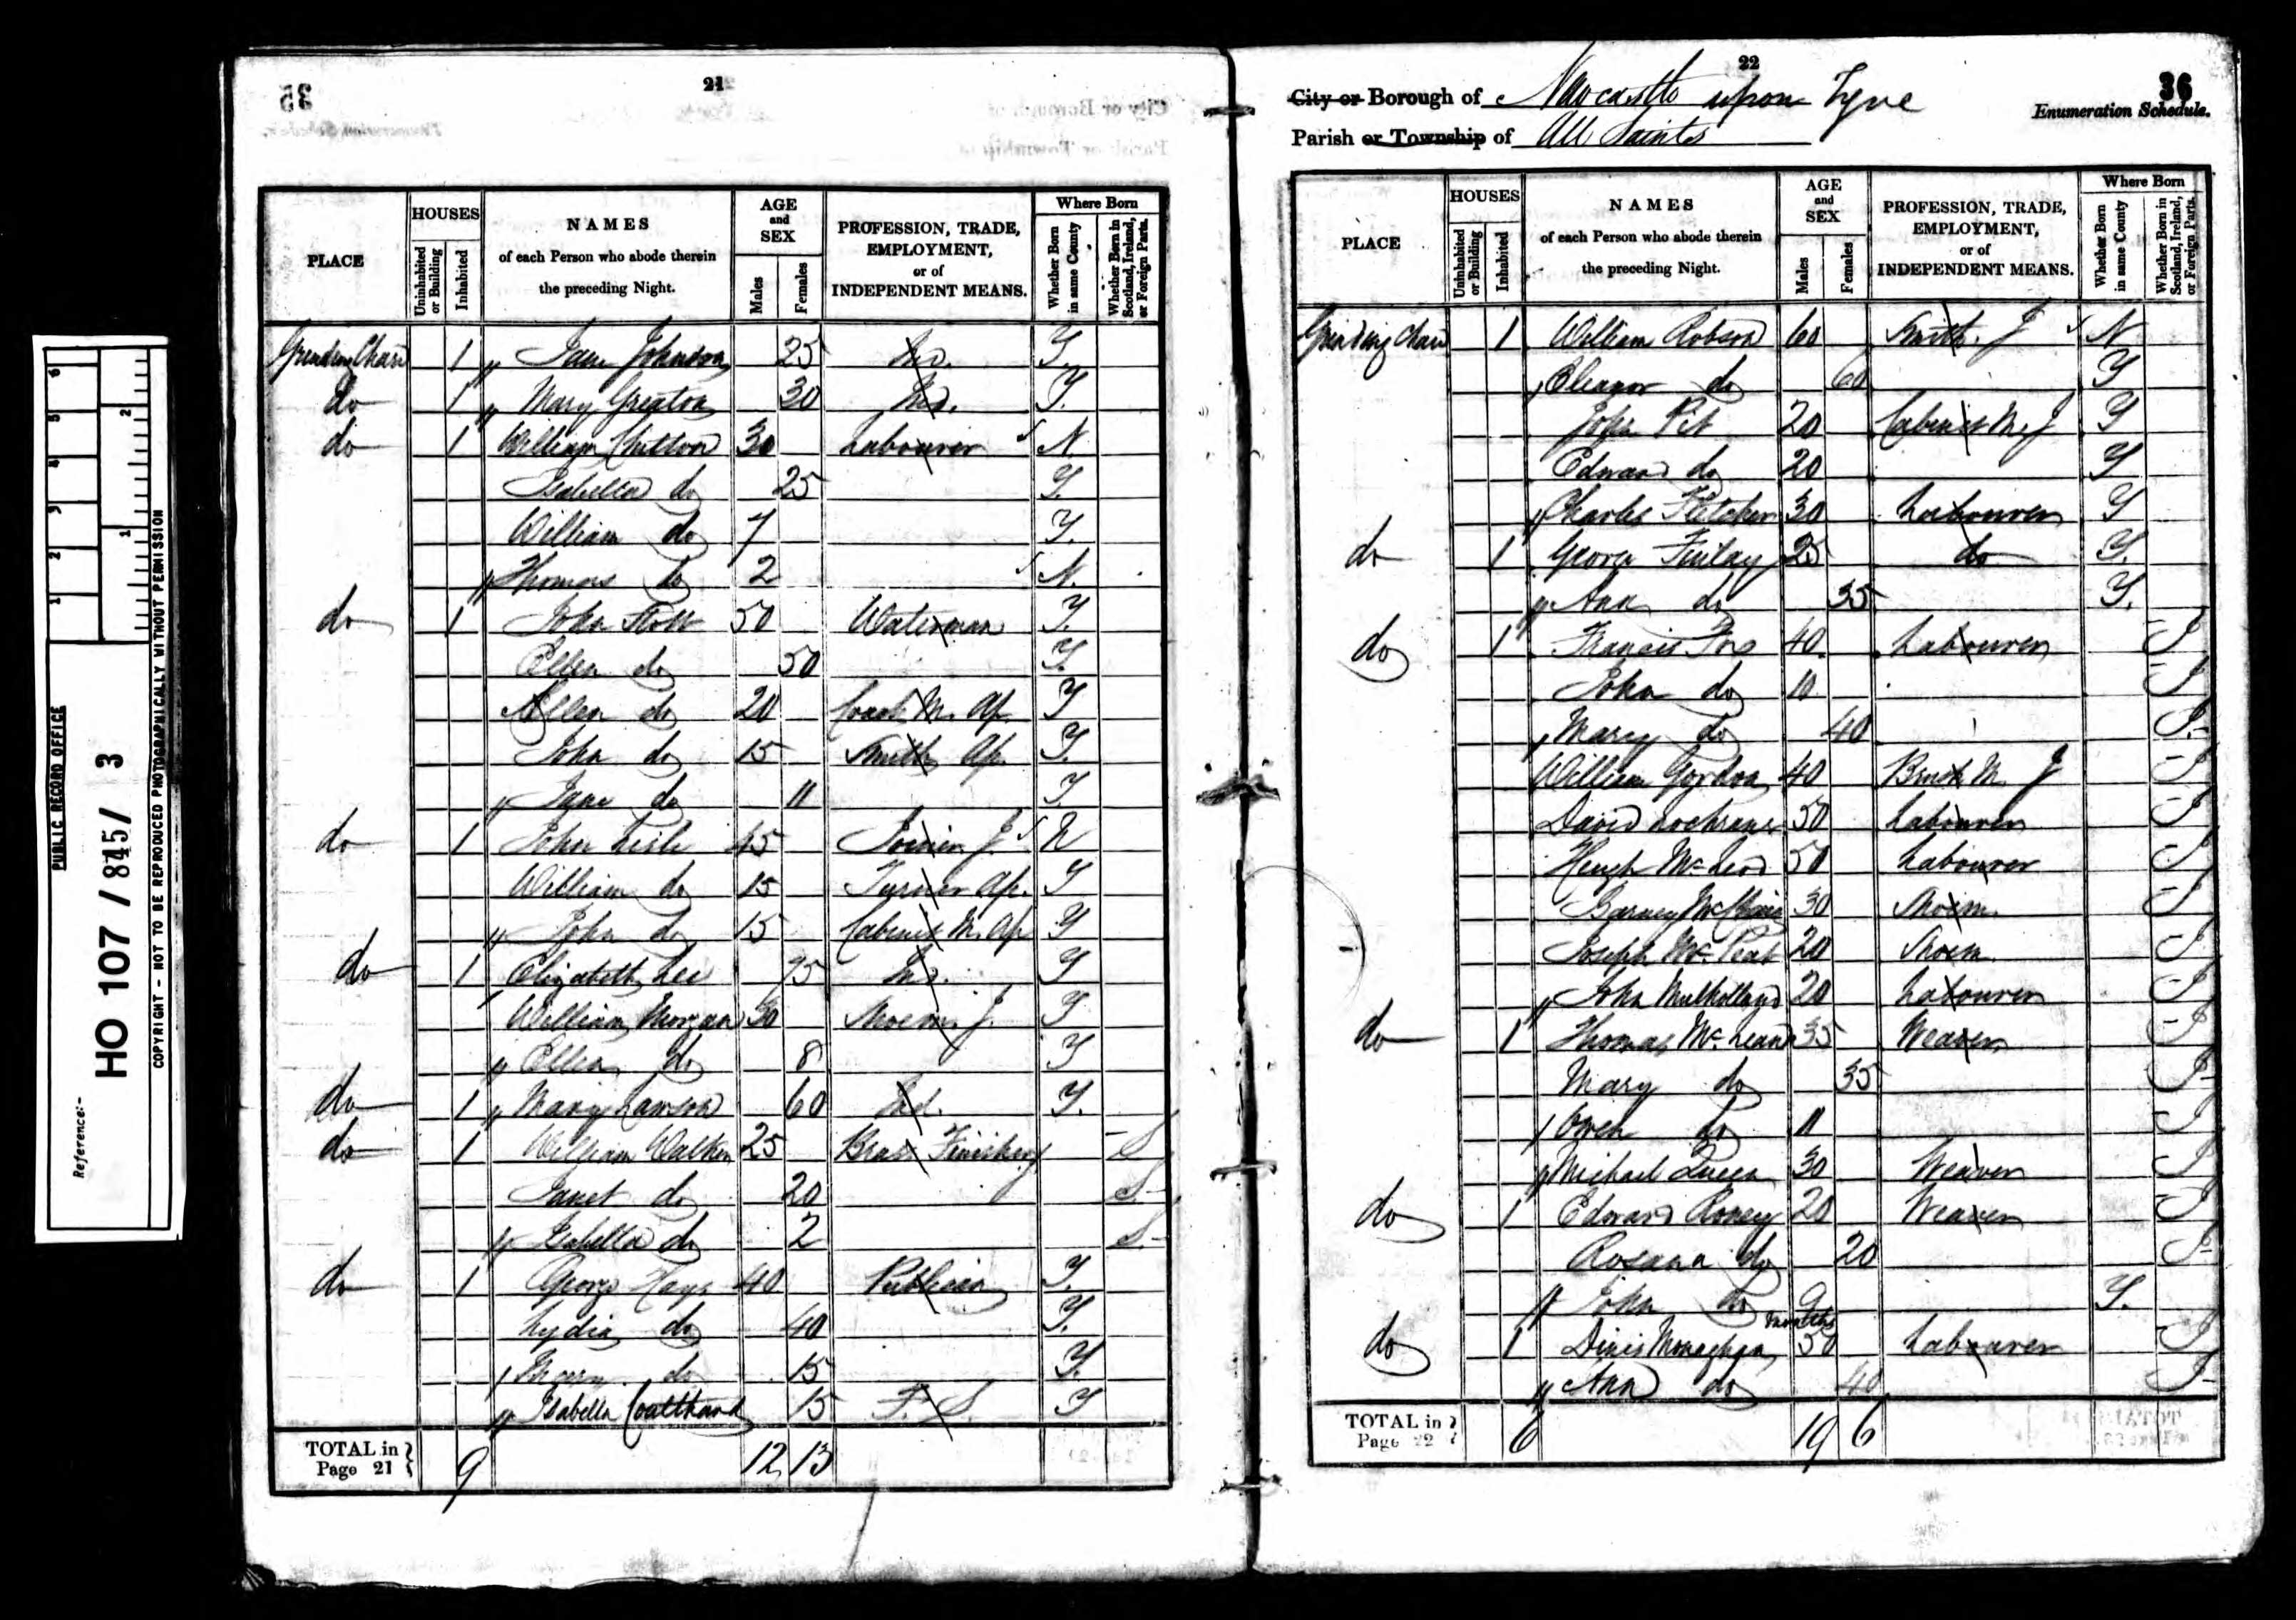 PUBLIC RECORD OFFICE
Reference:-
HO 107 / 845 / 3
COPYRIGHT - NOT TO BE REPRODUCED PHOTOGRAPHICALLY WITHOUT PERMISSION
21
PLACE
HOUSES
Uninhabited or Building
Inhabited
NAMES of each Person who abode therein the preceding Night.
AGE and SEX
Males
Females
PROFESSION, TRADE, EMPLOYMENT, or of INDEPENDENT MEANS.
Where Born
Whether Born in same County
Whether Born in Scotland, Ireland, or Foreign Parts.
Grinding Chare 1 Jane Johnson 25 Ind. Y.
do 1 Mary Greaton 30 Ind. Y.
do 1 William Chilton 30 Labourer N
Isabella do 25 Y.
William do 7 Y.
Thomas do 2 N.
do 1 John Stott 50 Waterman Y.
Ellen do 50 Y.
Allen do 20 Coach M. Ap. Y
John do 15 Smith Ap. Y.
Jane do 11 Y.
do 1 John Lisle 45 Joiner J. N
William do 15 Turner Ap. Y
John do 15 Cabinet M. Ap Y
do 1 Elizabeth Lee 75 Ind. Y
William Morgan 30 Shoem. J. Y
Ellen do 8 Y
do 1 Mary Lawson 60 Ind. Y.
do 1 William Walker 25 Brass Finisher S
Janet do 20 S.
Isabella do 2 S.
do 1 George Hays 40 Publican Y.
Lydia do 40 Y.
do 15 Y.
Isabella Coulthard 15 F. S. Y
TOTAL in Page 21 9 12 13
22
36
City or Borough of Newcastle upon Tyne
Enumeration Schedule.
Parish or Township of All Saints
PLACE
HOUSES
Uninhabited or Building
Inhabited
NAMES of each Person who abode therein the preceding Night.
AGE and SEX
Males
Females
PROFESSION, TRADE, EMPLOYMENT, or of INDEPENDENT MEANS.
Where Born
Whether Born in same County
Whether Born in Scotland, Ireland, or Foreign Parts.
Grinding Chare 1 William Robson 60 Smith. J N
Eleanor do 60 Y
John Pit 20 Cabinet M. J Y
Edward do 20 Y
Charles Fletcher 30 Labourer Y
do 1 George Finlay 25 do Y.
Ann do 35 Y.
do 1 Francis Fox 40 Labourer I
John do 10 I
Mary do 40 I
William Gordon 40 Brush M. J I
David Cochrane 50 Labourer I
Hugh McLeod 50 Labourer I
Barney 30 Shoem. I
Joseph McPeat 20 Shoem. I
John Mulholland 20 Labourer I
do 1 Thomas McLean 35 Weaver I
Mary do 35 I
Owen do 11 I
Michael Queen 30 Weaver I
do 1 Edward Roney 20 Weaver I
Rosana do 20 I
John do 9 months Y.
do 1 Dinis Monaghan 50 Labourer I
Ann do 40 I
TOTAL in Page 22 6 19 6